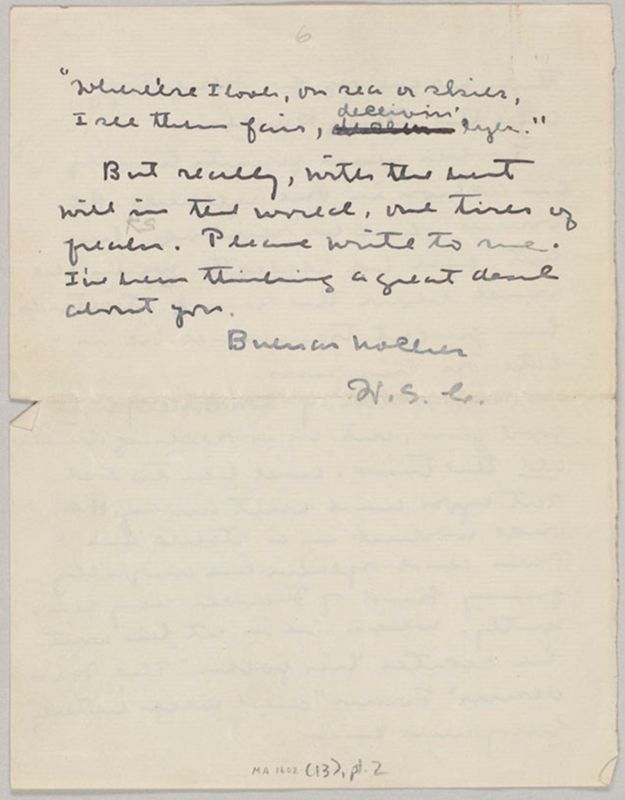 6
"Where'ere I look, on sea or skies,
deceivin'
I see them fair, eyes."
But really, with the best
will in the world, one tires of
ks
freaks. Please write to me.
I've been thinking a great deal
about you.
Buenas noches
W. S. C.
MA 1602 (13), pt. 2